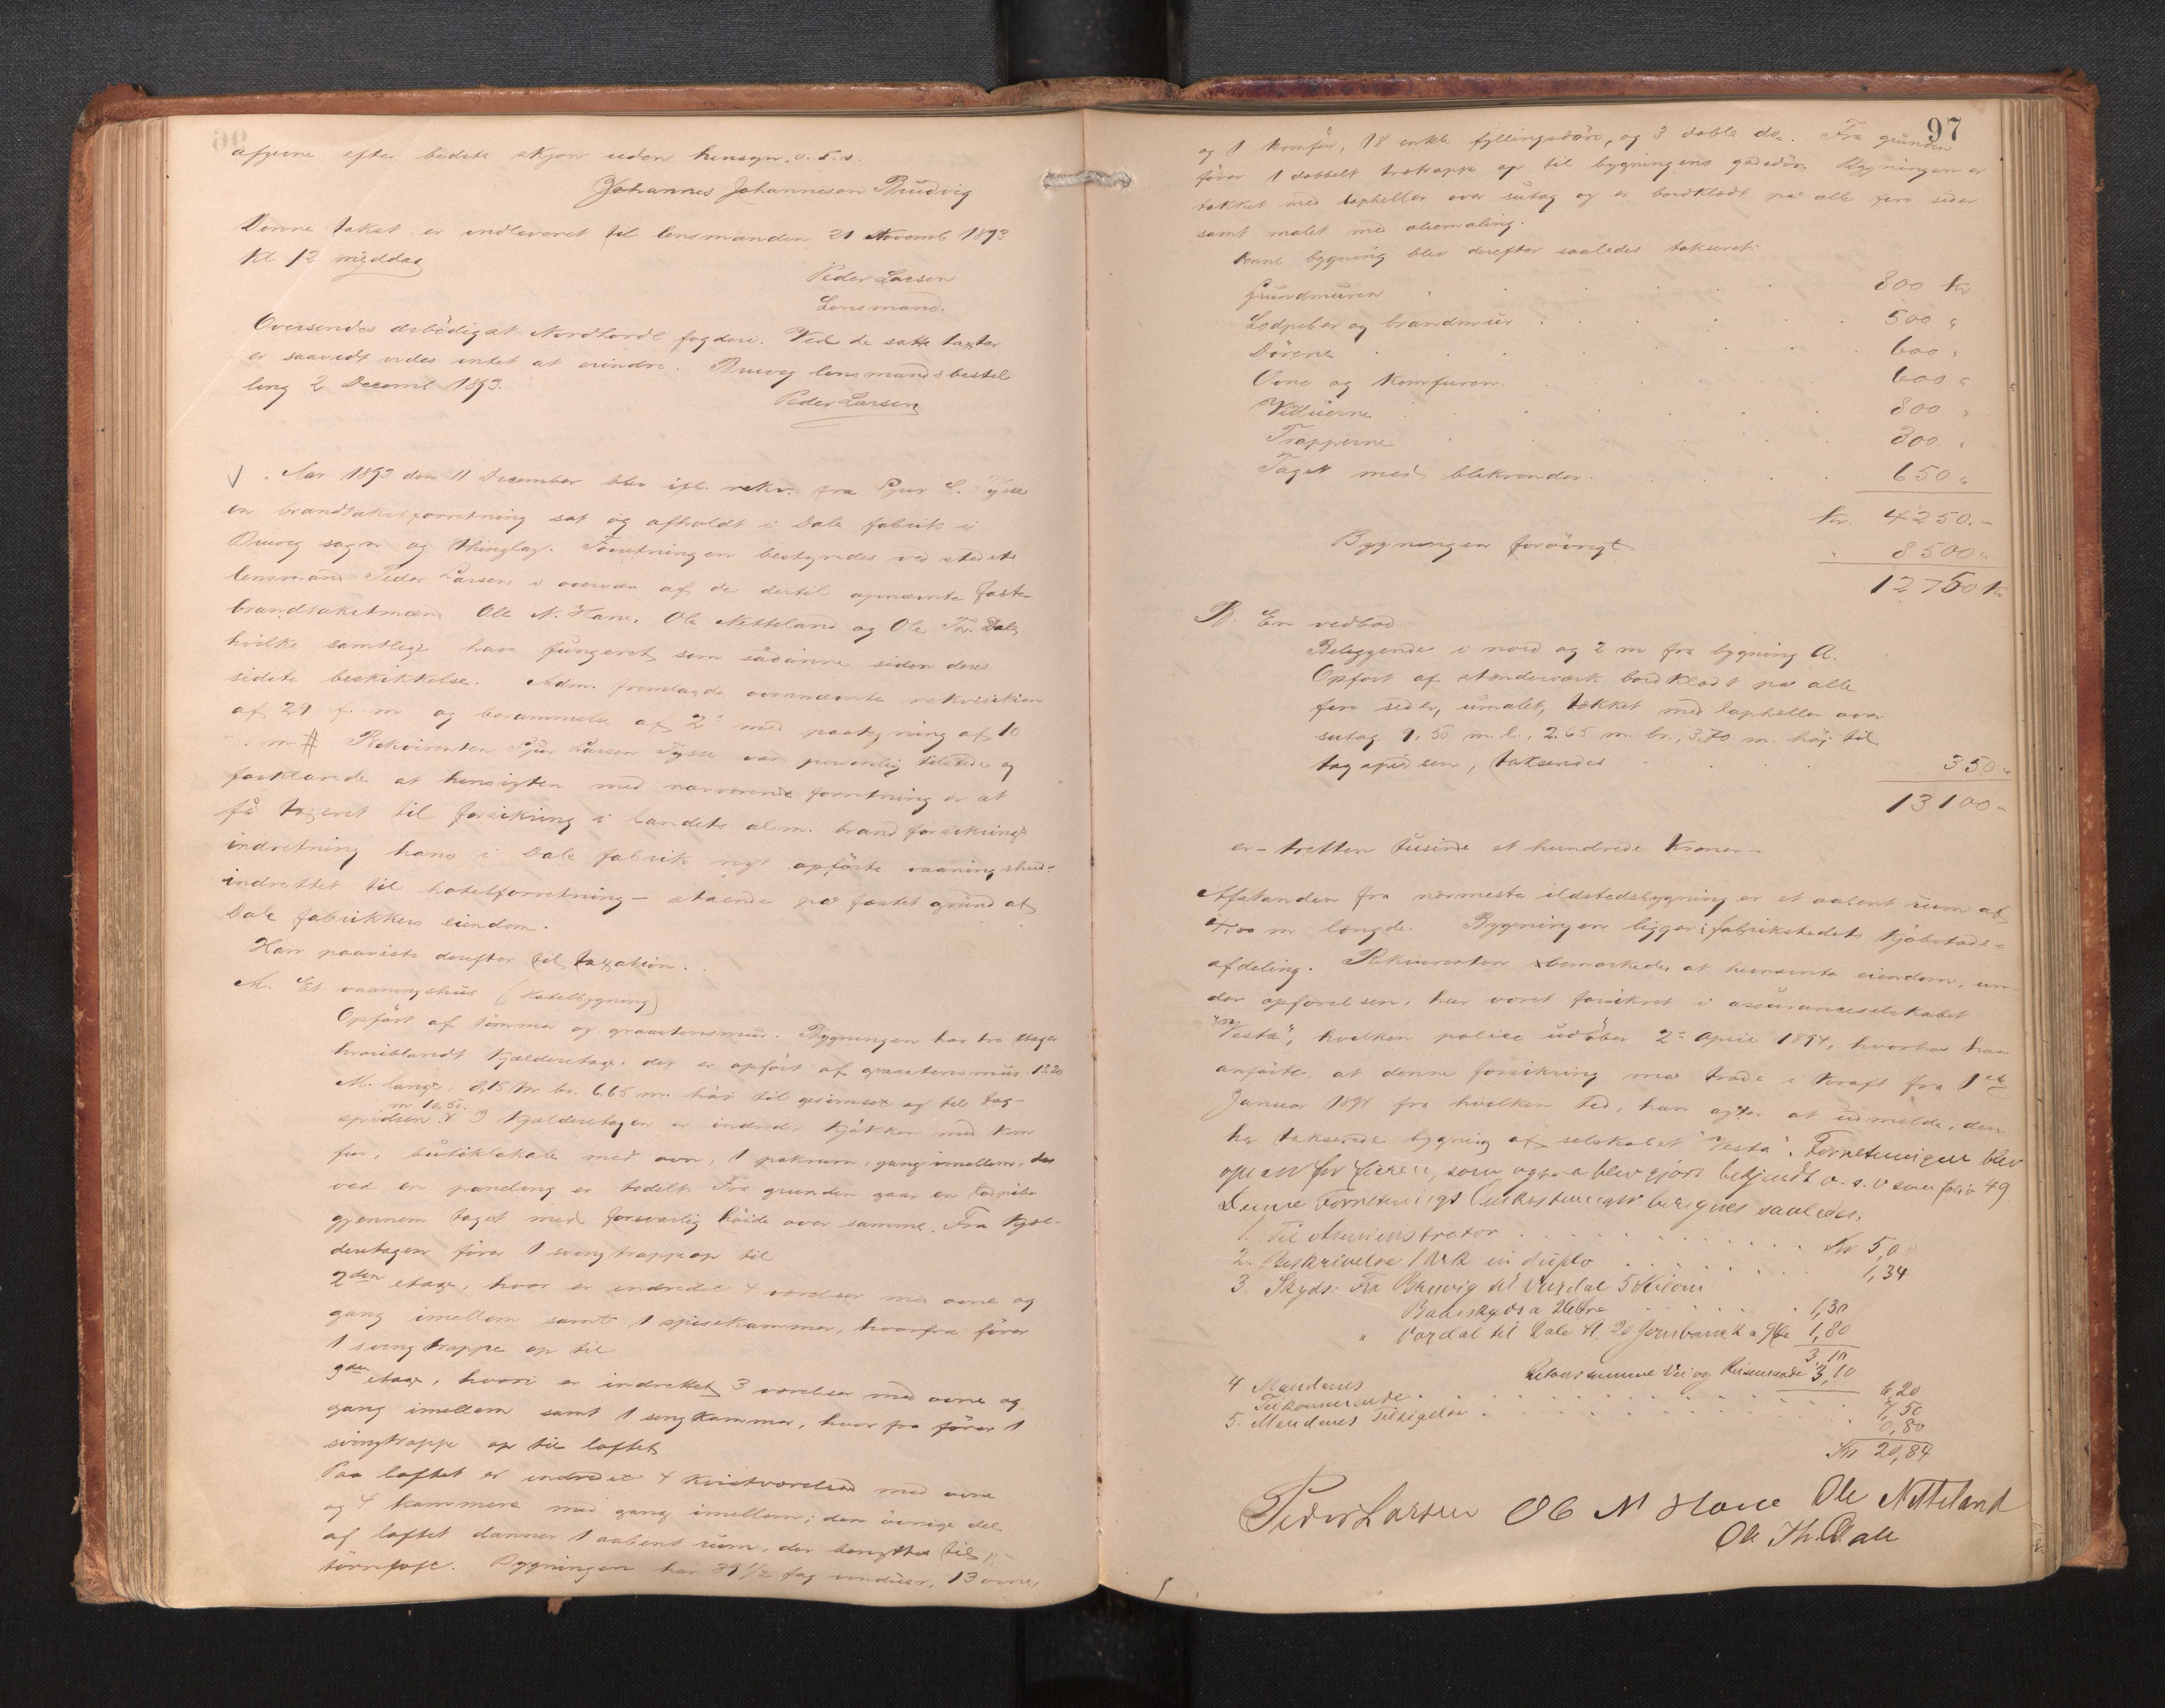 afgivne efter bedste skjøn uden hensyn o. s. v.
Johannes Johannesen Bruvig
Denne takst er indleveret til lensmanden 21 Novemb 1893
Kl 12 middag
Peder Larsen
Lensmand.
Oversendes ærbödigst Nordhordl fogderi. Ved de satte taxter
er saavidt vides intet at erindre. Bruvig lensmandsbestil
ling 2 Decembr 1893.
Peder Larsen
Aar 1893 den 11 December blev ifl. rekv. fra Sjur L. Tysse
en brandtakstforretning sat og afholdt i Dale fabrik i
Bruvig sogn og thinglag. Forretningen bestyredes ved stedets
lensmand Peder Larsen i overvær af de dertil opnævnte faste
brandtakstmænd Ole N. Hane, Ole Netteland og Ole Th. Dale
hvilke samtlige have fungeret som sådanne siden deres
sidste beskikkelse. Adm. fremlagde ovennævnte rekvisition
af 29 f. m og berammelse af 2 med paategning af 10
d. m # Rekvirenten Sjur Larsen Tysse var personlig tilstede og
forklarede at hensigten med nærværende forretning er at
få taxeret til forsikring i landets alm. brandforsikrings
indretning hans i Dale fabrik nyt opförte vaaningshus
indrettet til hotelforretning – staaende paa fæstet grund af
Dale fabrikkers eiendom.
Han paaviste derefter til taxation.
A. Et vaaningshus (Hotelbygning)
Opfört af tömmer og graastensmur. Bygningen har tre etager
hvoriblandt kjælderetage, der er opfört af graastensmur 12.20
M. lange, 8,15 M br. 6.65 m. höi til gesimset og til tag-
spidsen m 10.50. I kjælderetagen er indredet kjökken med kom
fur, butiklokale med ovn, 1 pakrum, gang imellem, der
ved en paneling er todelt. Fra grunden gaar en lodpibe
gjennem taget med forsvarlig höide over samme. Fra kjæl-
deretagen förer 1 svingtrappe op til
2den etage, hvor er indredet 4 værelser med ovne og
gang imellem samt 1 spisekammer, hvorfra förer
1 svingtrappe op til
3die etage, hvori er indrettet 3 værelser med ovne og
gang imellem samt 1 sengkammer, hvor fra förer 1
svingtrappe op til loftet
Paa loftet er indredet 4 kvistværelser med ovne
og 4 kammere med gang imellem; den övrige del
af loftet danner 1 aabent rum, der benyttes til
törreloft. Bygningen har 39 1/2 fag vinduer, 13 ovne,
97
og 1 komfür, 18 enkle fyllingsdöre, og 3 doble do. Fra grunden
förer 1 dobbelt trætrappe op til bygningens gadedör. Bygningen er
tækket med lapheller over sutag og er bordklædt paa alle fire sider
samt malet med oliemaling.
Denne bygning blev derefter saaledes takseret:
Grundmuren 800 kr
Lodpiber og brandmur 500 "
Dörene 600 "
Ovne og komfuren 600 "
Vinduerne 800 "
Trapperne 300 "
Taget med blikrender 650 "
Kr. 4250.-
Bygningen forövrigt " 8500 "
12750 Kr
B. En vedbod.
Beliggende i nord og 2 m fra bygning A.
Opfört af stænderværk bordklædt paa alle
fire sider, umalet, tækket med lapheller over
sutag 9.50 m. l., 2.65 m br., 3.70 m. höi til
tagspidsen, takseredes 350 "
13100 -
er – tretten tusinde et hundrede kroner –
Afstanden fra nærmeste ildstedsbygning er et aabent rum af
m længde. Bygningen ligger i fabrikstedets kjöbstads-
afdeling. Rekvirenten bemærkede, at hernævnte eiendom, un-
der opförelsen, har været forsikret i assuranceselskabet
"Vesta", hvilken police udlöber 2 April 1894, hvorhos han
anförte, at denne forsikring maa træde i kraft fra 1ste
Januar 1894 fra hvilken tid, han agter at udmelde, den
her takserede bygning af selskabet "Vesta". Forretningen blev
oplæst for Eieren, som ogsaa blev gjort bekjendt o. s. v som folio 49
Denne Forretnings Omkostninger beregnes saaledes:
1. Til Administrator Kr 5,00
2. Beskrivelse 1 Ark in duplo 1,34
3. Skyds: Fra Bruvig til Vaxdal 5 Kilom
Baadskyds a 26 Øre 1,30
" Vaxdal til Dale St. 20 Jernbane K a 9 Øre 1,80
3,10
Retour samme Vei og Reisemaade 3,10
6,20
4 Mændenes
Tilkommende 7,50
5. Mændenes Tilsigelse 0,80
Kr 20,84
Peder Larsen Ole N Hane Ole Netteland
Ole Th. Dale